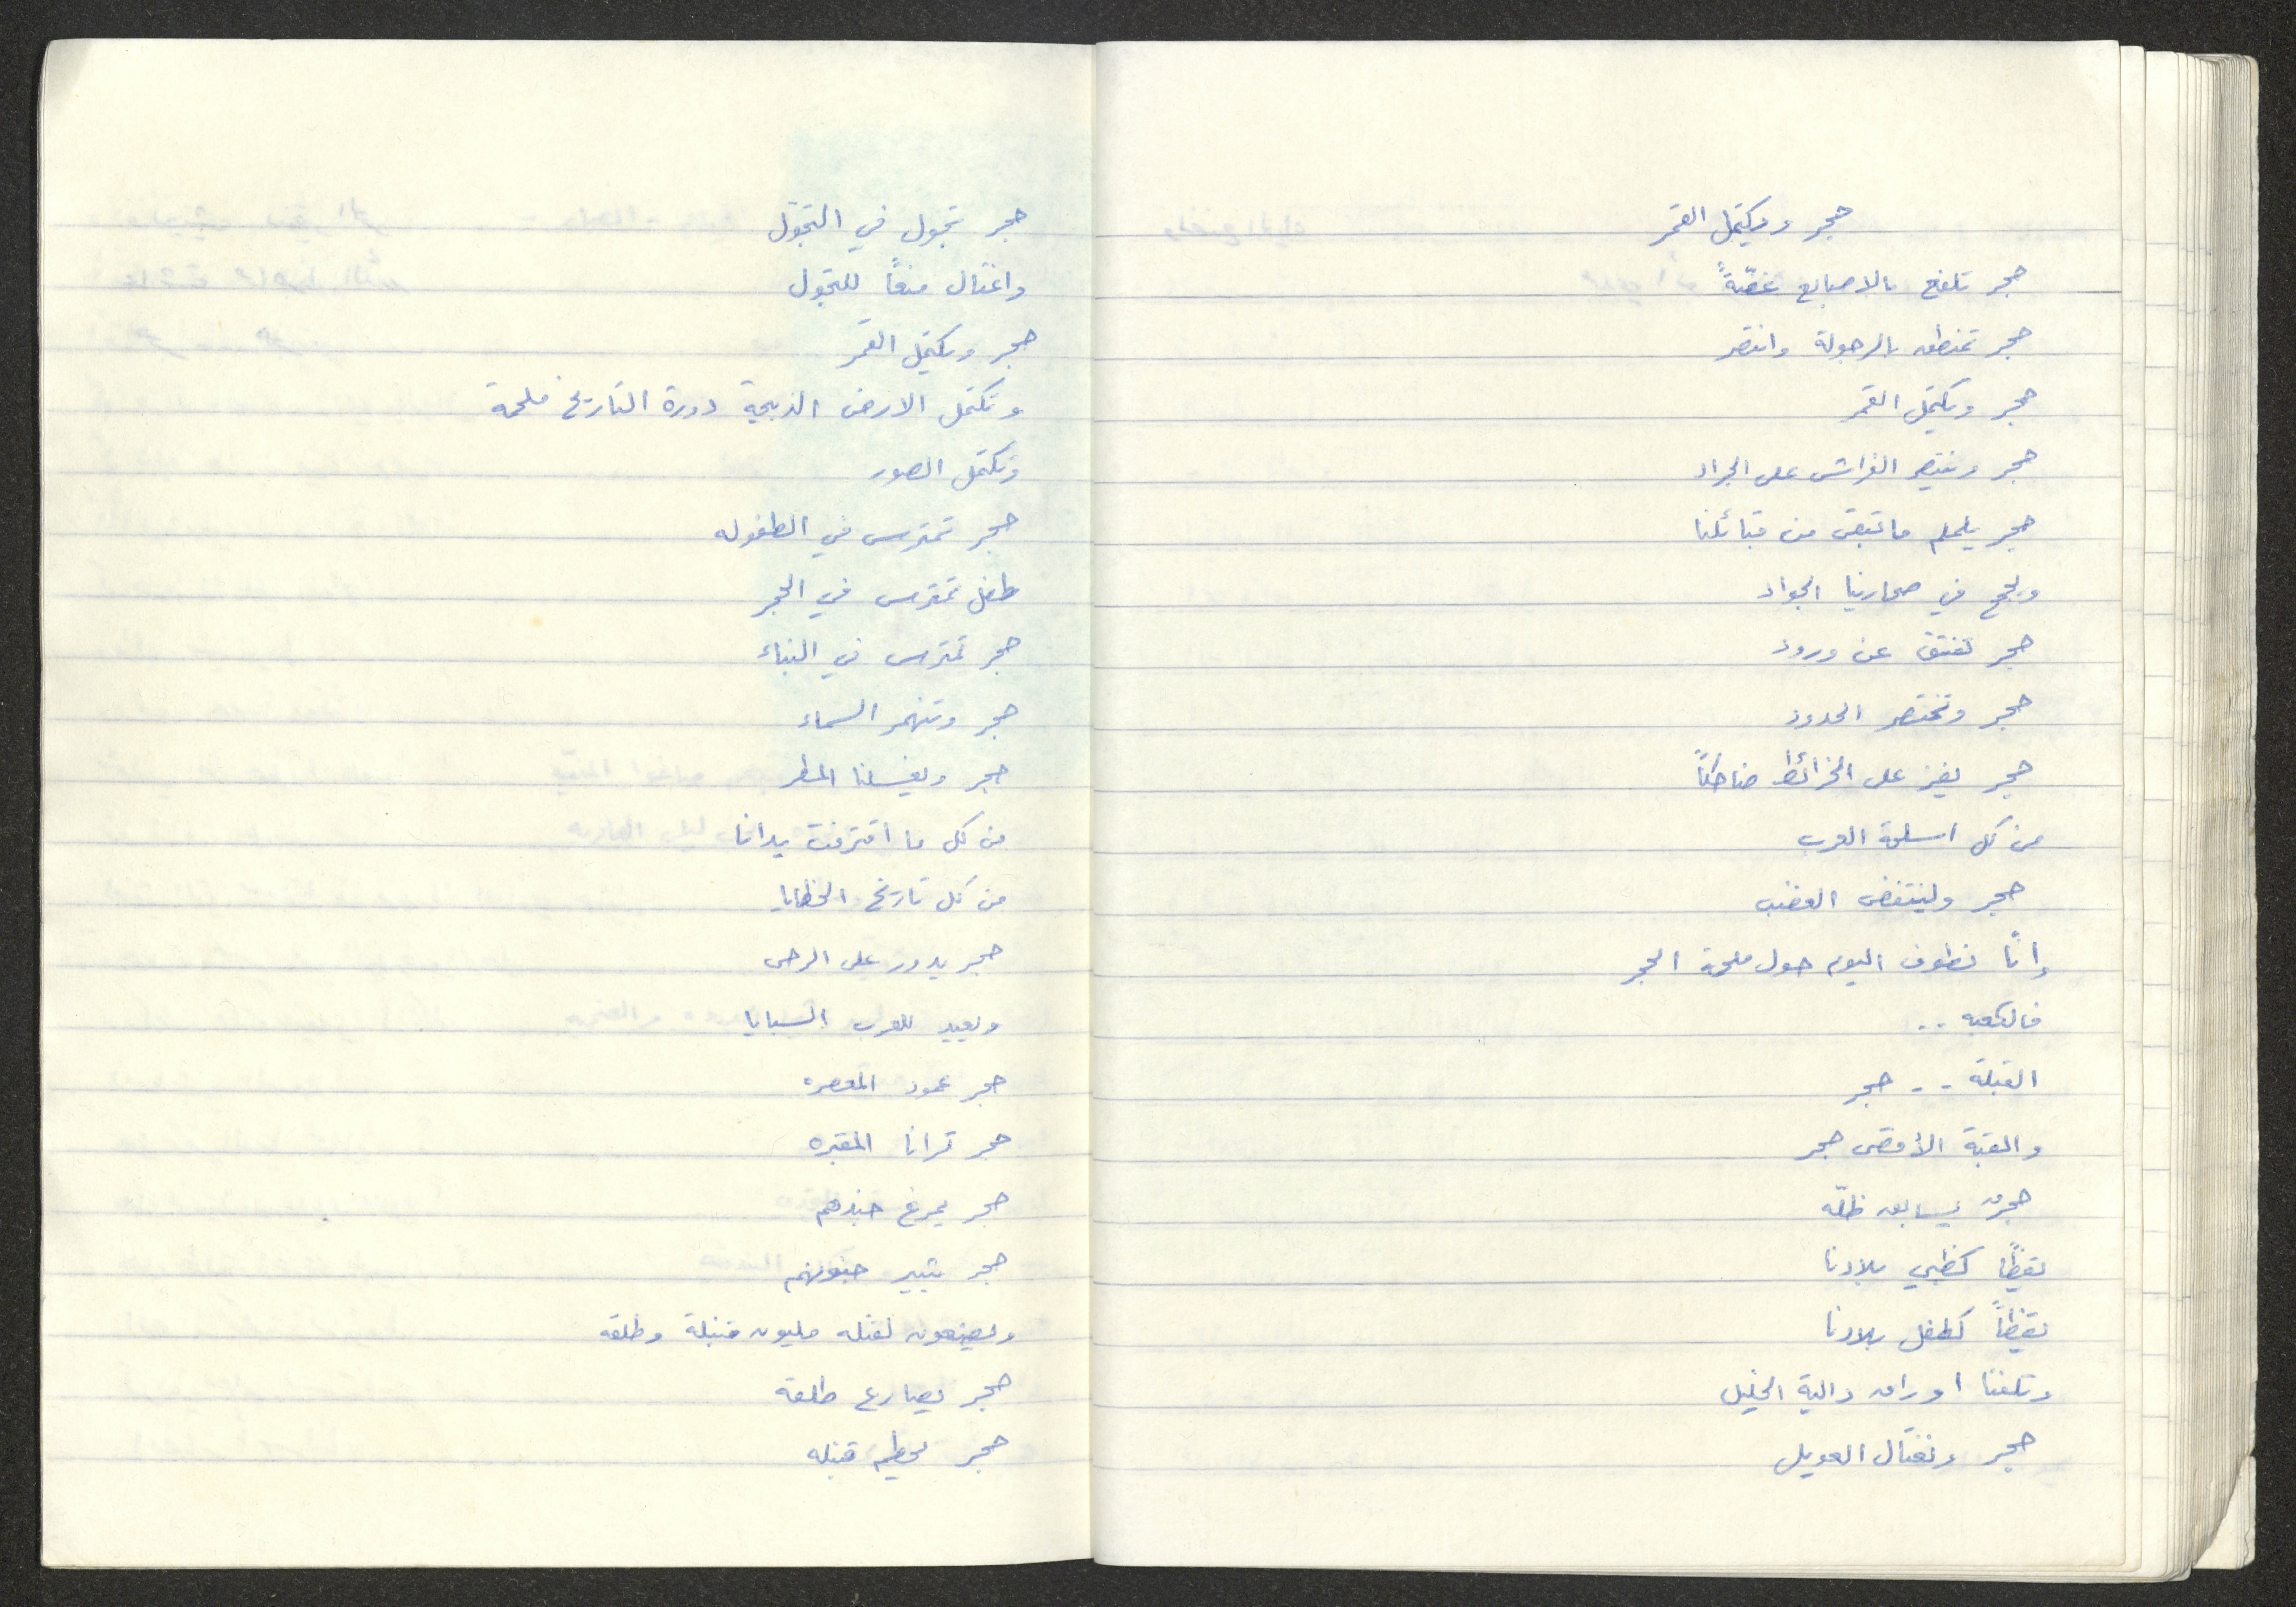 حجر ويكتمل القمر
حجر تلفع بالاصابع غصّةً
حجر تمنطق بالرجولة وانتصر
حجر ويكتمل القمر
حجر وينتصر الفراش على الجراد
حجر يلملم ما تبقى من قبائلنا
ويجمح في صحارينا الجواد
حجر تفتق عن ورود
حجر وتختصر الحدود
حجر يفز على الخرائط ضاحكاً
من كل اسلحة العرب
حجر ولينتفض الغضب
إنّا نطوف اليوم حول ملحمة الحجر
فالكعبه ..
القبلة .. حجر
والقبة الأقصى حجر
حجر يسابق ظلّه
يقظاً كظبي بلادنا
يقظاً كطفل بلادنا
وتلفنا اوراق دالية الخليل
حجر ونغتال العويل
حجر تجول في التجوّل
واغتال منعاً للتجول
حجر ويكتمل القمر
وتكتمل الارض الذبيحة دورة التاريخ ملحمة
وتكتمل الصور
حجر تمترس في الطفوله
طفل تمترس في الحجر
حجر تمترس في البناء
حجر وتنهمر السماء
حجر ويغسلنا المطر
من كل ما اقترفت يدانا
من كل تاريخ الخطايا
حجر يدور على الرحى
ويعيد للعرب السبايا
حجر عمود المعصره
حجر ترانا المقبره
حجر يمرغ جندهم
حجر يثير جنونهم
ويصنعون لقتله مليون قنبلة وطلقه
حجر يصارع طلقة
حجر يحطم قنبله